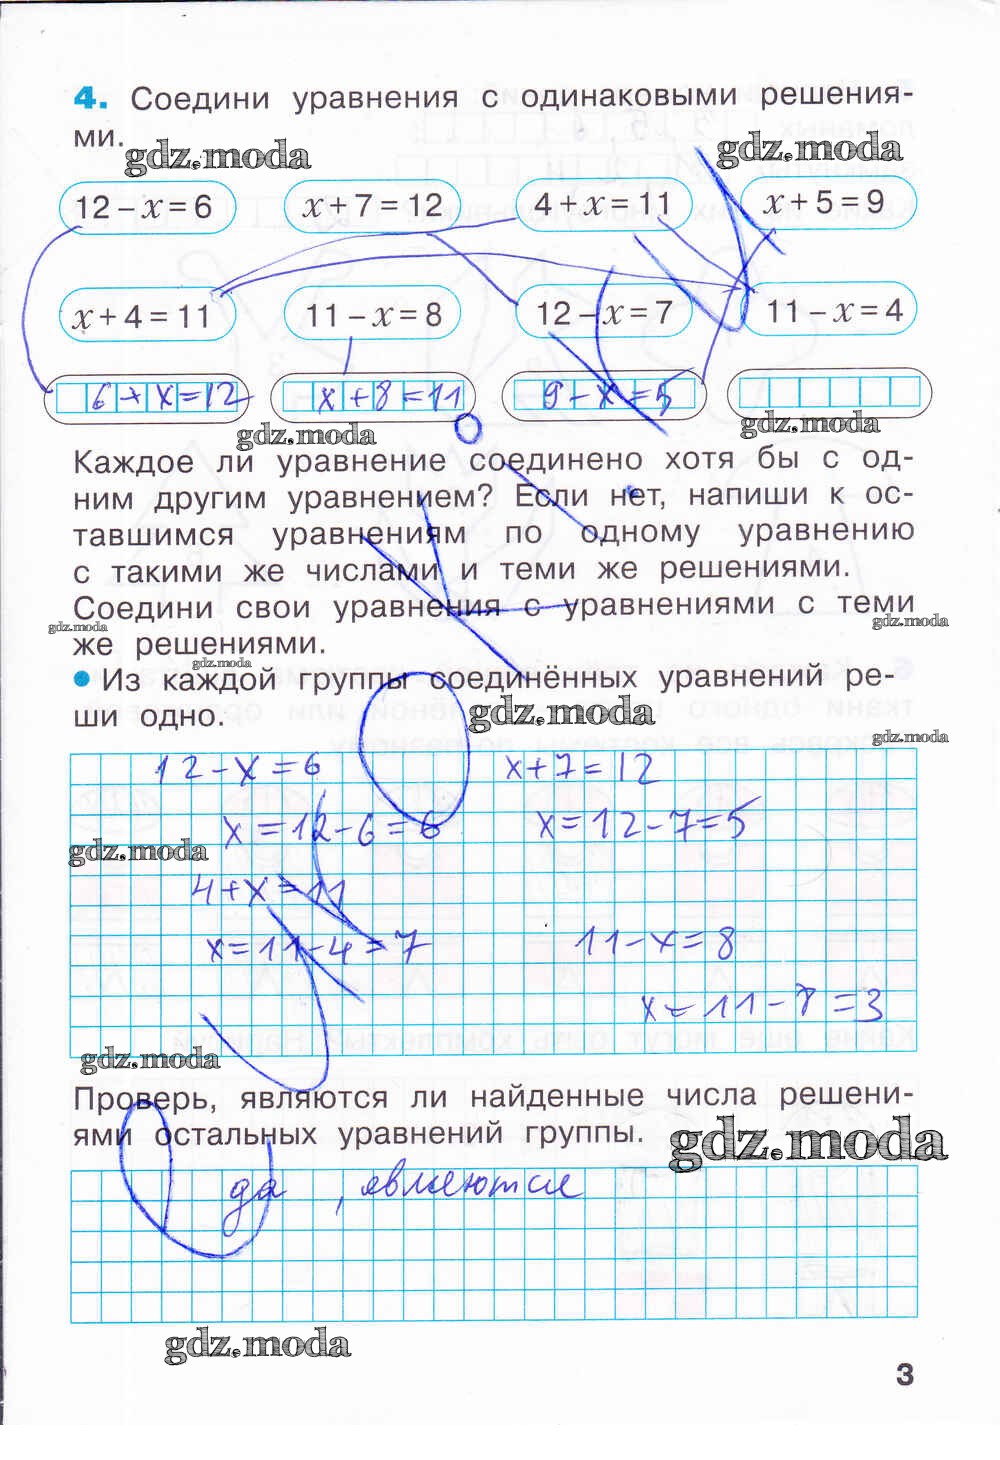 4. Соедини уравнения с одинаковыми решения-
ми.
gdz.moda gdz.moda
12 – x = 6 x + 7 = 12 4 + x = 11 x + 5 = 9
x + 4 = 11 11 – x = 8 12 – x = 7 11 – x = 4
6 + x = 12 x + 8 = 11 9 – x = 5
gdz.moda gdz.moda
Каждое ли уравнение соединено хотя бы с од-
ним другим уравнением? Если нет, напиши к ос-
тавшимся уравнениям по одному уравнению
с такими же числами и теми же решениями.
Соедини свои уравнения с уравнениями с теми
gdz.moda gdz.moda
же решениями.
gdz.moda
• Из каждой группы соединённых уравнений ре-
ши одно.
gdz.moda
gdz.moda
12 – x = 6 x + 7 = 12
x = 12 – 6 = 6 x = 12 – 7 = 5
gdz.moda
4 + x = 11
x = 11 – 4 = 7 11 – x = 8
x = 11 – 8 = 3
gdz.moda
Проверь, являются ли найденные числа решени-
ями остальных уравнений группы.
gdz.moda
да, являются
gdz.moda
3